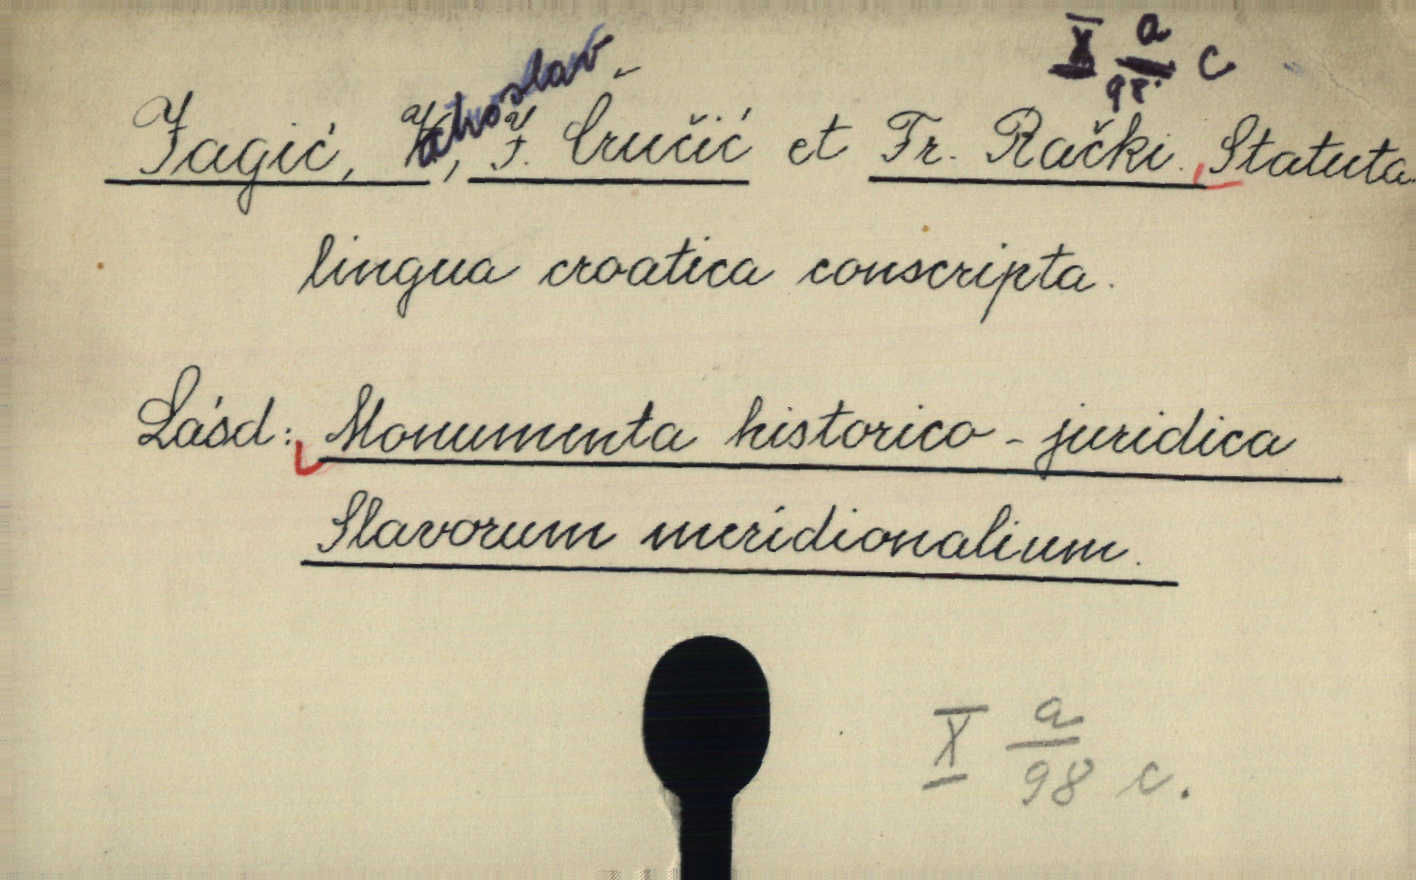 X a/98. c
Jagić, Vatroslav, I. Cručić et Fr. Rački. Statuta
lingua croatica conscripta.
Lásd: Monumenta historico-juridica
Slavorum meridionalium.
X a/98 c.